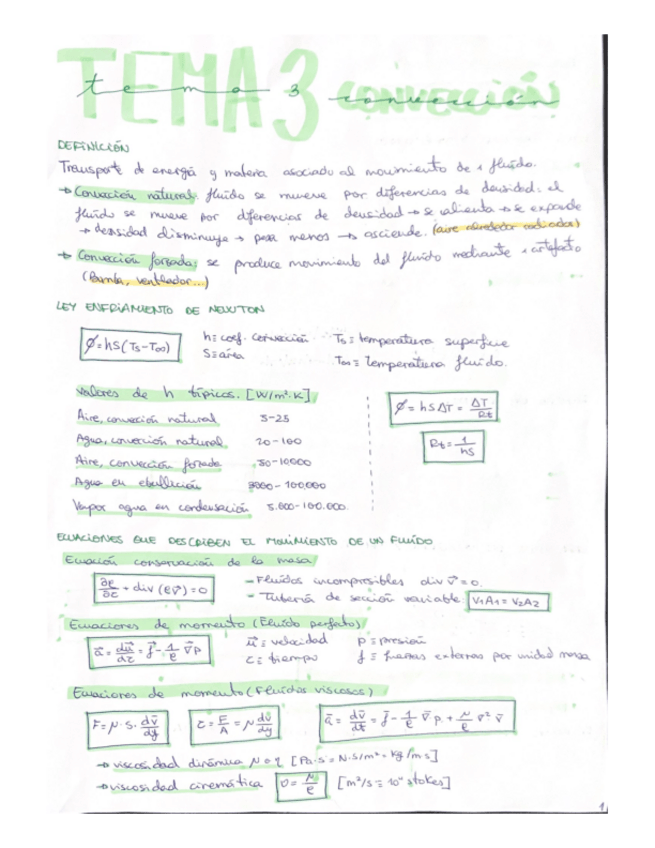 TEMA 3 CONVECCIÓN
tema 3 convección
DEFINICIÓN
Transporte de energía y materia asociado al movimiento de 1 fluido.
→ Convección natural: fluido se mueve por diferencias de densidad: el
fluido se mueve por diferencias de densidad → se calienta → se expande
→ densidad disminuye → pesa menos → asciende. (aire alrededor radiador)
→ Convección forzada: se produce movimiento del fluido mediante 1 artefacto
(Bomba, ventilador...)
LEY ENFRIAMIENTO DE NEWTON
ϕ = hS(Ts-T∞)
h ≡ coef. convección Ts ≡ temperatura superficie
S ≡ área T∞ ≡ temperatura fluido.
Valores de h típicos. [W/m²·K]
Aire, convección natural 5-25
Agua, convección natural 20-100
Aire, convección forzada
Agua en ebullición 3000-100,000
Vapor agua en condensación 5.000-100.000
ϕ = hSΔT = ΔT/Rt
Rt = 1/hS
ECUACIONES QUE DESCRIBEN EL MOVIMIENTO DE UN FLUIDO
Ecuación conservación de la masa
∂ρ/∂τ + div(ρv⃗) = 0
- Fluidos incompresibles div v⃗ = 0.
- Tubería de sección variable V1A1 = V2A2
Ecuaciones de momento (Fluido perfecto)
a⃗ = du⃗/dτ = f⃗ - 1/ρ ∇p
u⃗ ≡ velocidad p ≡ presión
τ ≡ tiempo f ≡ fuerzas externas por unidad masa
Ecuaciones de momento (Fluidos viscosos)
F = μ·S·dv⃗/dy
τ = F/A = μ dv⃗/dy
a⃗ = dv⃗/dt = f⃗ - 1/ρ ∇p + μ/ρ ∇² v⃗
→ viscosidad dinámica μ o η [Pa·s = N·s/m² = kg/m s]
→ viscosidad cinemática υ = μ/ρ [m²/s ≡ 10⁴ stokes]
1